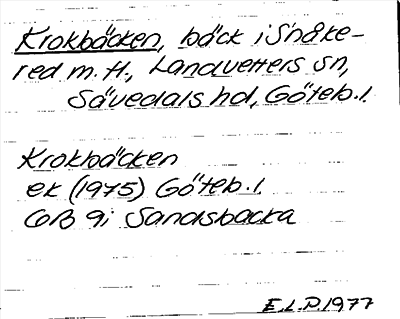 Krokbäcken, bäck i Snåke-
red m. fl., Landvetters sn,
Sävedals hd, Göteb. l.
Krokbäcken
ek (1975) Göteb. l.
GB 9i Sandsbacka
E.L.P. 1977